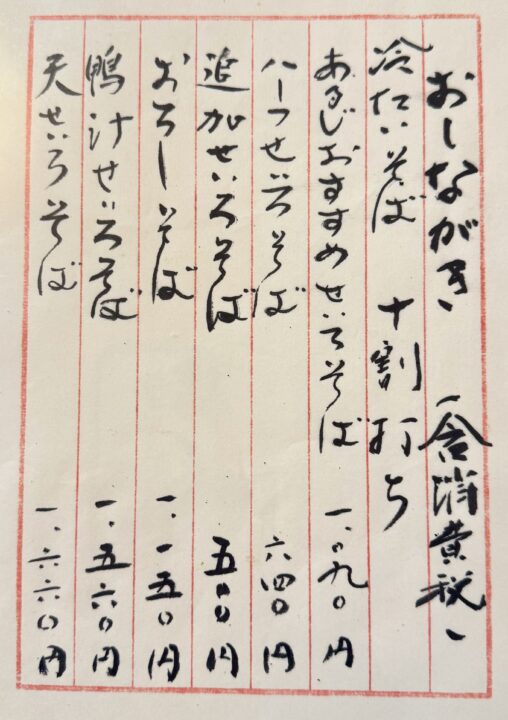 おしながき (含消費税)
冷たいそば 十割打ち
あるじおすすめせいろそば 一、〇九〇円
ハーフせいろそば 六四〇円
追加せいろそば 五〇〇円
おろしそば 一、一五〇円
鴨汁せいろそば 一、五六〇円
天せいろそば 一、六六〇円